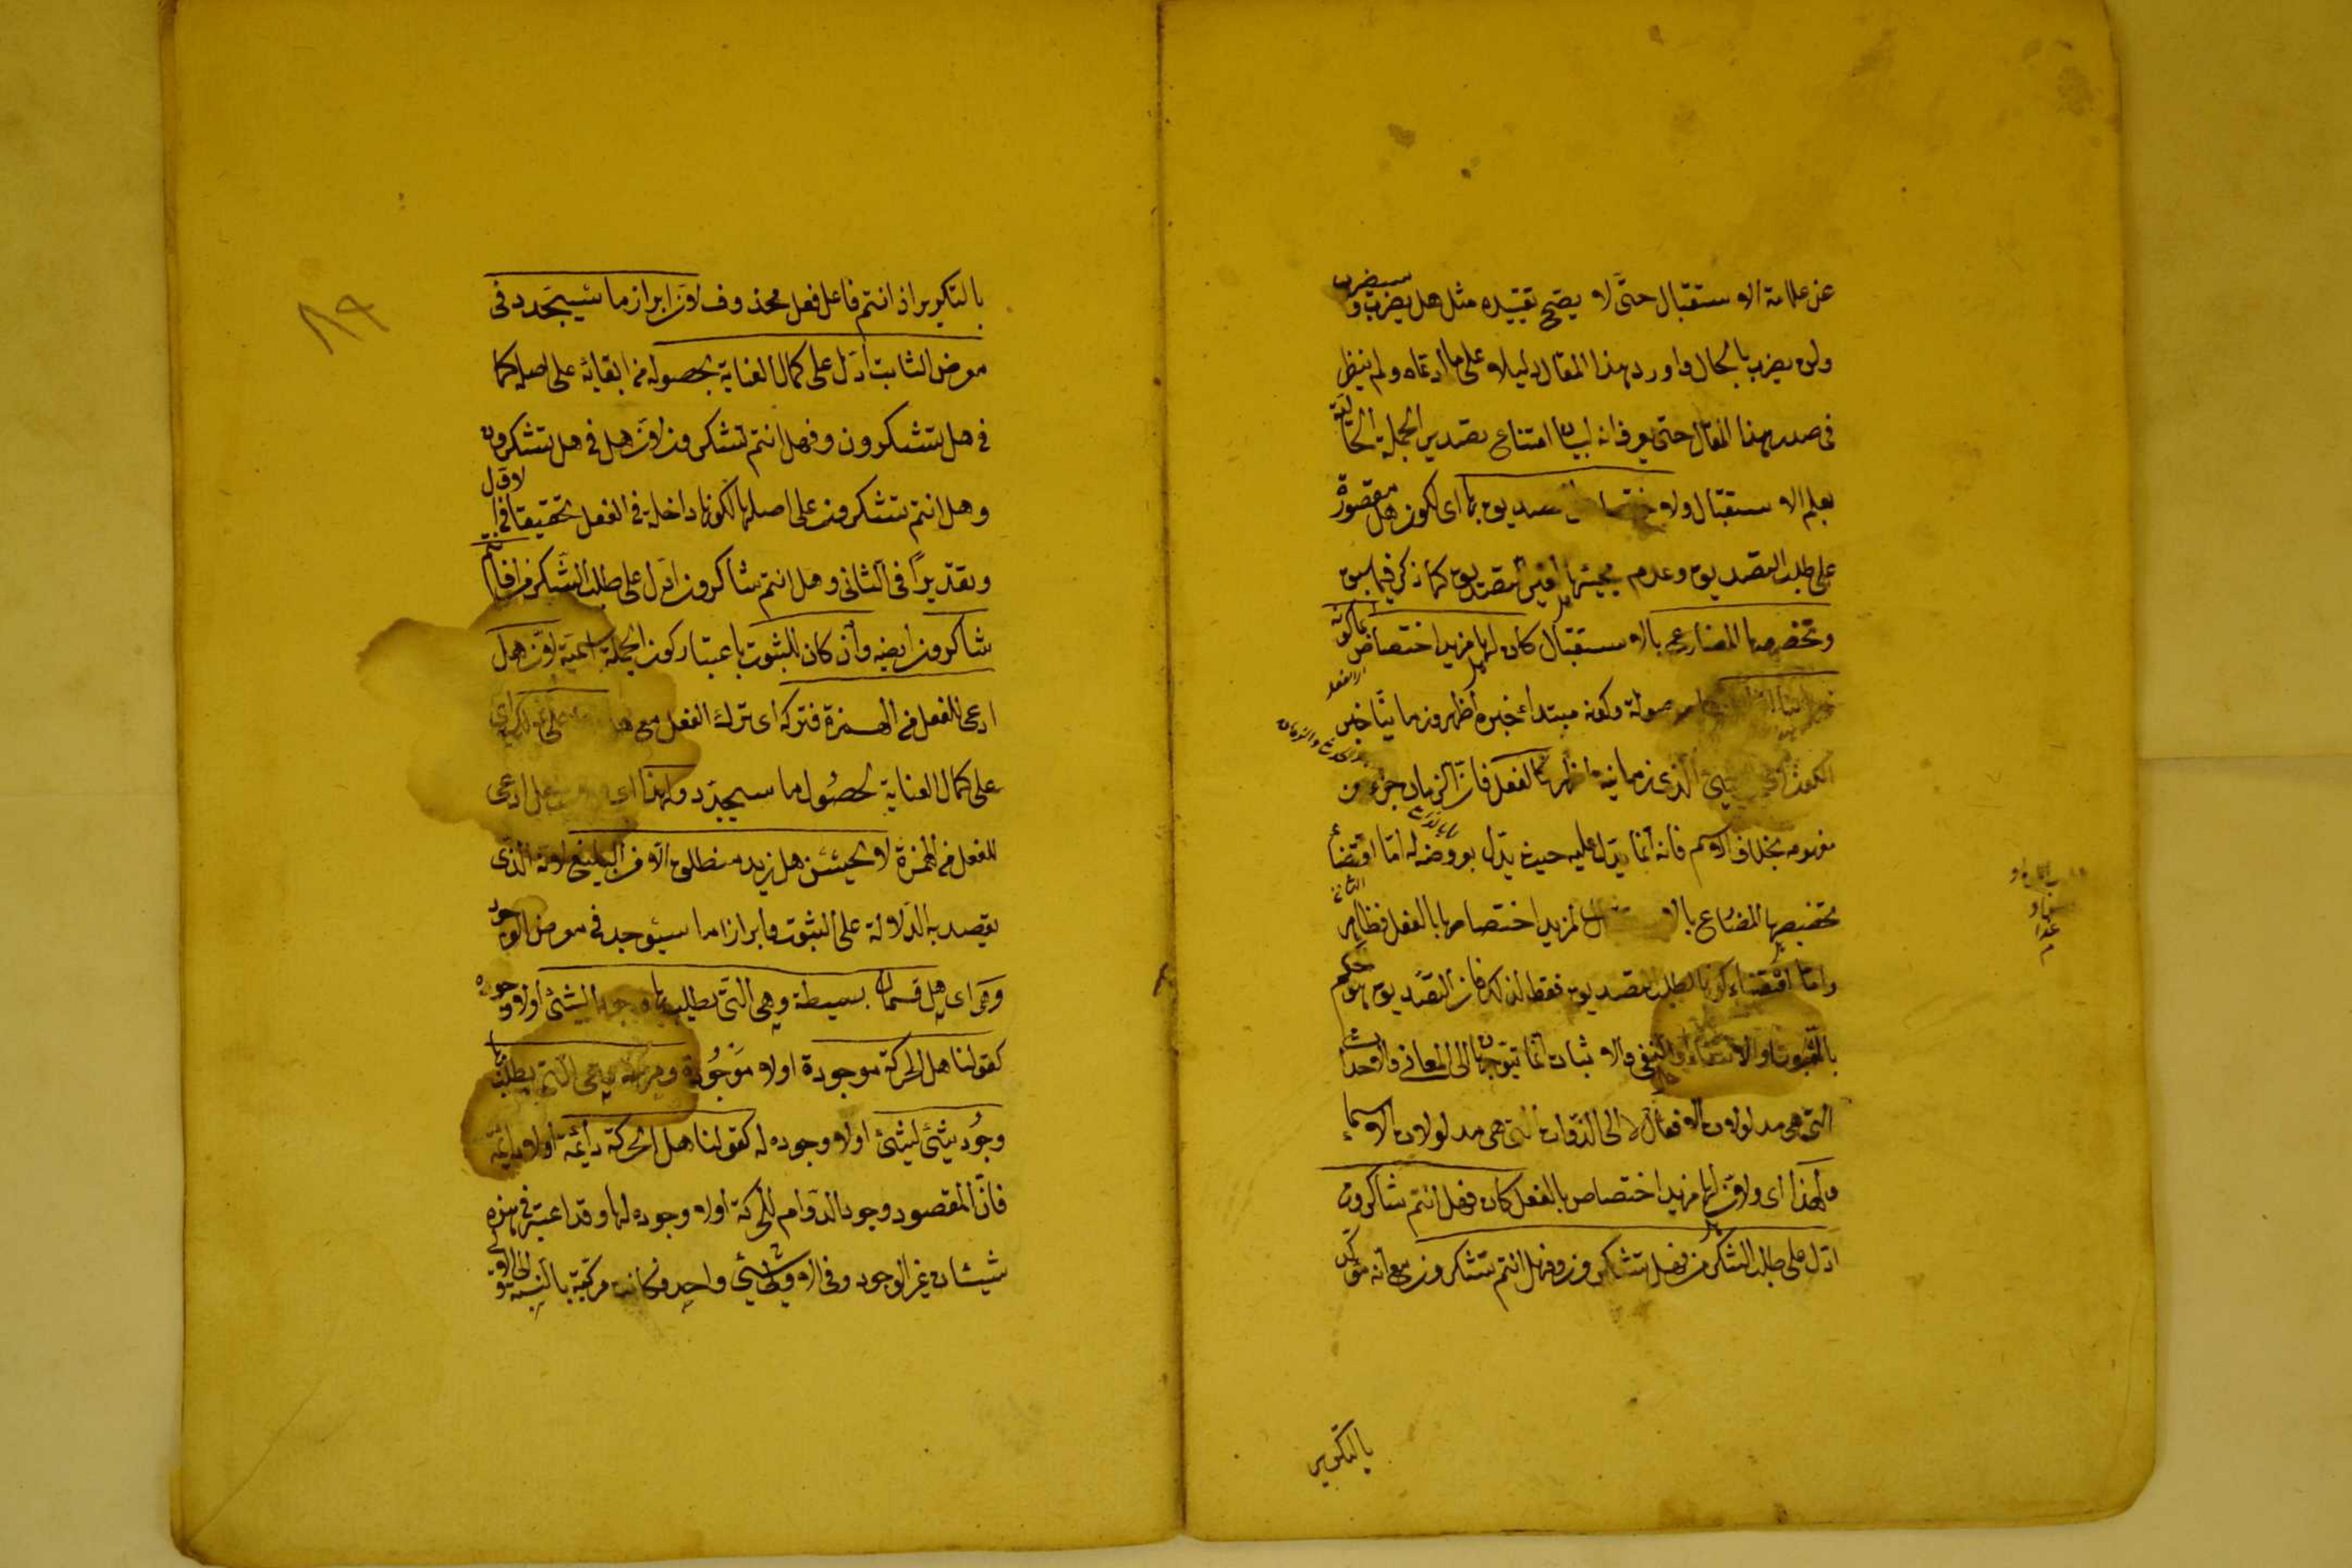 عن علامة الاستقبال حتى لا يصح تقييده مثل هل يضرب و سيضرب
ولن يضرب بالحال واورد هذا المقال دليلا على ما ادعاه ولم ينظر
فى صدر هذا المقال حتى يعرف انه لبيان امتناع تصدير الجملة الحالية
بعلم الاستقبال ولاختصاص التصديق بها اى لكون هل مقصورة
على طلب التصديق وعدم مجيئها لغير التصديق كما ذكر فيما سبق
وتخصيصها المضارع بالاستقبال كان لها مزيد اختصاص بما كونه
زمانيا اظهر موصولة وكونه مبتداء خبره اظهر وزمانيا خبر
الكون اى بالشئ الذى زمانيته اظهر كالفعل فان الزمان جزء من
مفهومه بخلاف الاسم فانه انما يدل عليه حيث يدل بعروضه له اما اقتضاء
تخصيصها المضارع بالاستقبال لمزيد اختصاصها بالفعل فظاهر
واما اقتضاء كونها لطلب التصديق فقط لذلك فان التصديق هو حكم
بالثبوت او الانتفاء والنفى والاثبات انما يتوجهان الى المعانى والاحداث
التى هى مدلولات الافعال لا الى الذوات التى هى مدلولات الاسماء
ولهذا اى ولان لها مزيد اختصاص بالفعل كان فهل انتم شاكرون
ادل على طلب الشكر من فهل تشكرون وفهل انتم تشكرون مع انه مؤكد
بالتكرير
بالتكرير اذ انتم فاعل فعل محذوف لان ابراز ما سيتجدد فى
معرض الثابت ادل على كمال العناية بحصوله من ابقائه على اصله كما
فى هل تشكرون وفهل انتم تشكرون لان هل فى هل تشكرون
وهل انتم تشكرون على اصلها لكونها داخلة فى الفعل تحقيقا فى الاول
وتقديرًا فى الثانى وهل انتم شاكرون ادل على طلب الشكر من افانتم
شاكرون ايضا وان كان للثبوت باعتبار كون الجملة اسمية لان هل
ادعى للفعل من الهمزة فتركه اى ترك الفعل مع هل ادل على ذلك اى
على كمال العناية بحصول ما سيتجدد ولهذا اى ولان هل ادعى
للفعل من الهمزة لا يحسن هل زيد منطلق الا من البليغ لانه الذى
يقصد به الدلالة على الثبوت وابراز ما سيوجد فى معرض الموجود
وهى اى هل قسمان بسيطة وهى التى يطلب بها وجود الشئ اولا وجوده
كقولنا هل الحركة موجودة او لا موجودة ومركبة وهى التى يطلب بها
وجود شئ لشئ اولا وجوده له كقولنا هل الحركة دائمة او لا دائمة
فان المقصود وجود الدوام للحركة اولا وجوده لها وقد اعتبر فى هذه
شيئان غير الوجود وفى الاولى شئ واحد فكانت مركبة بالنسبة الى الاولى
٨٩